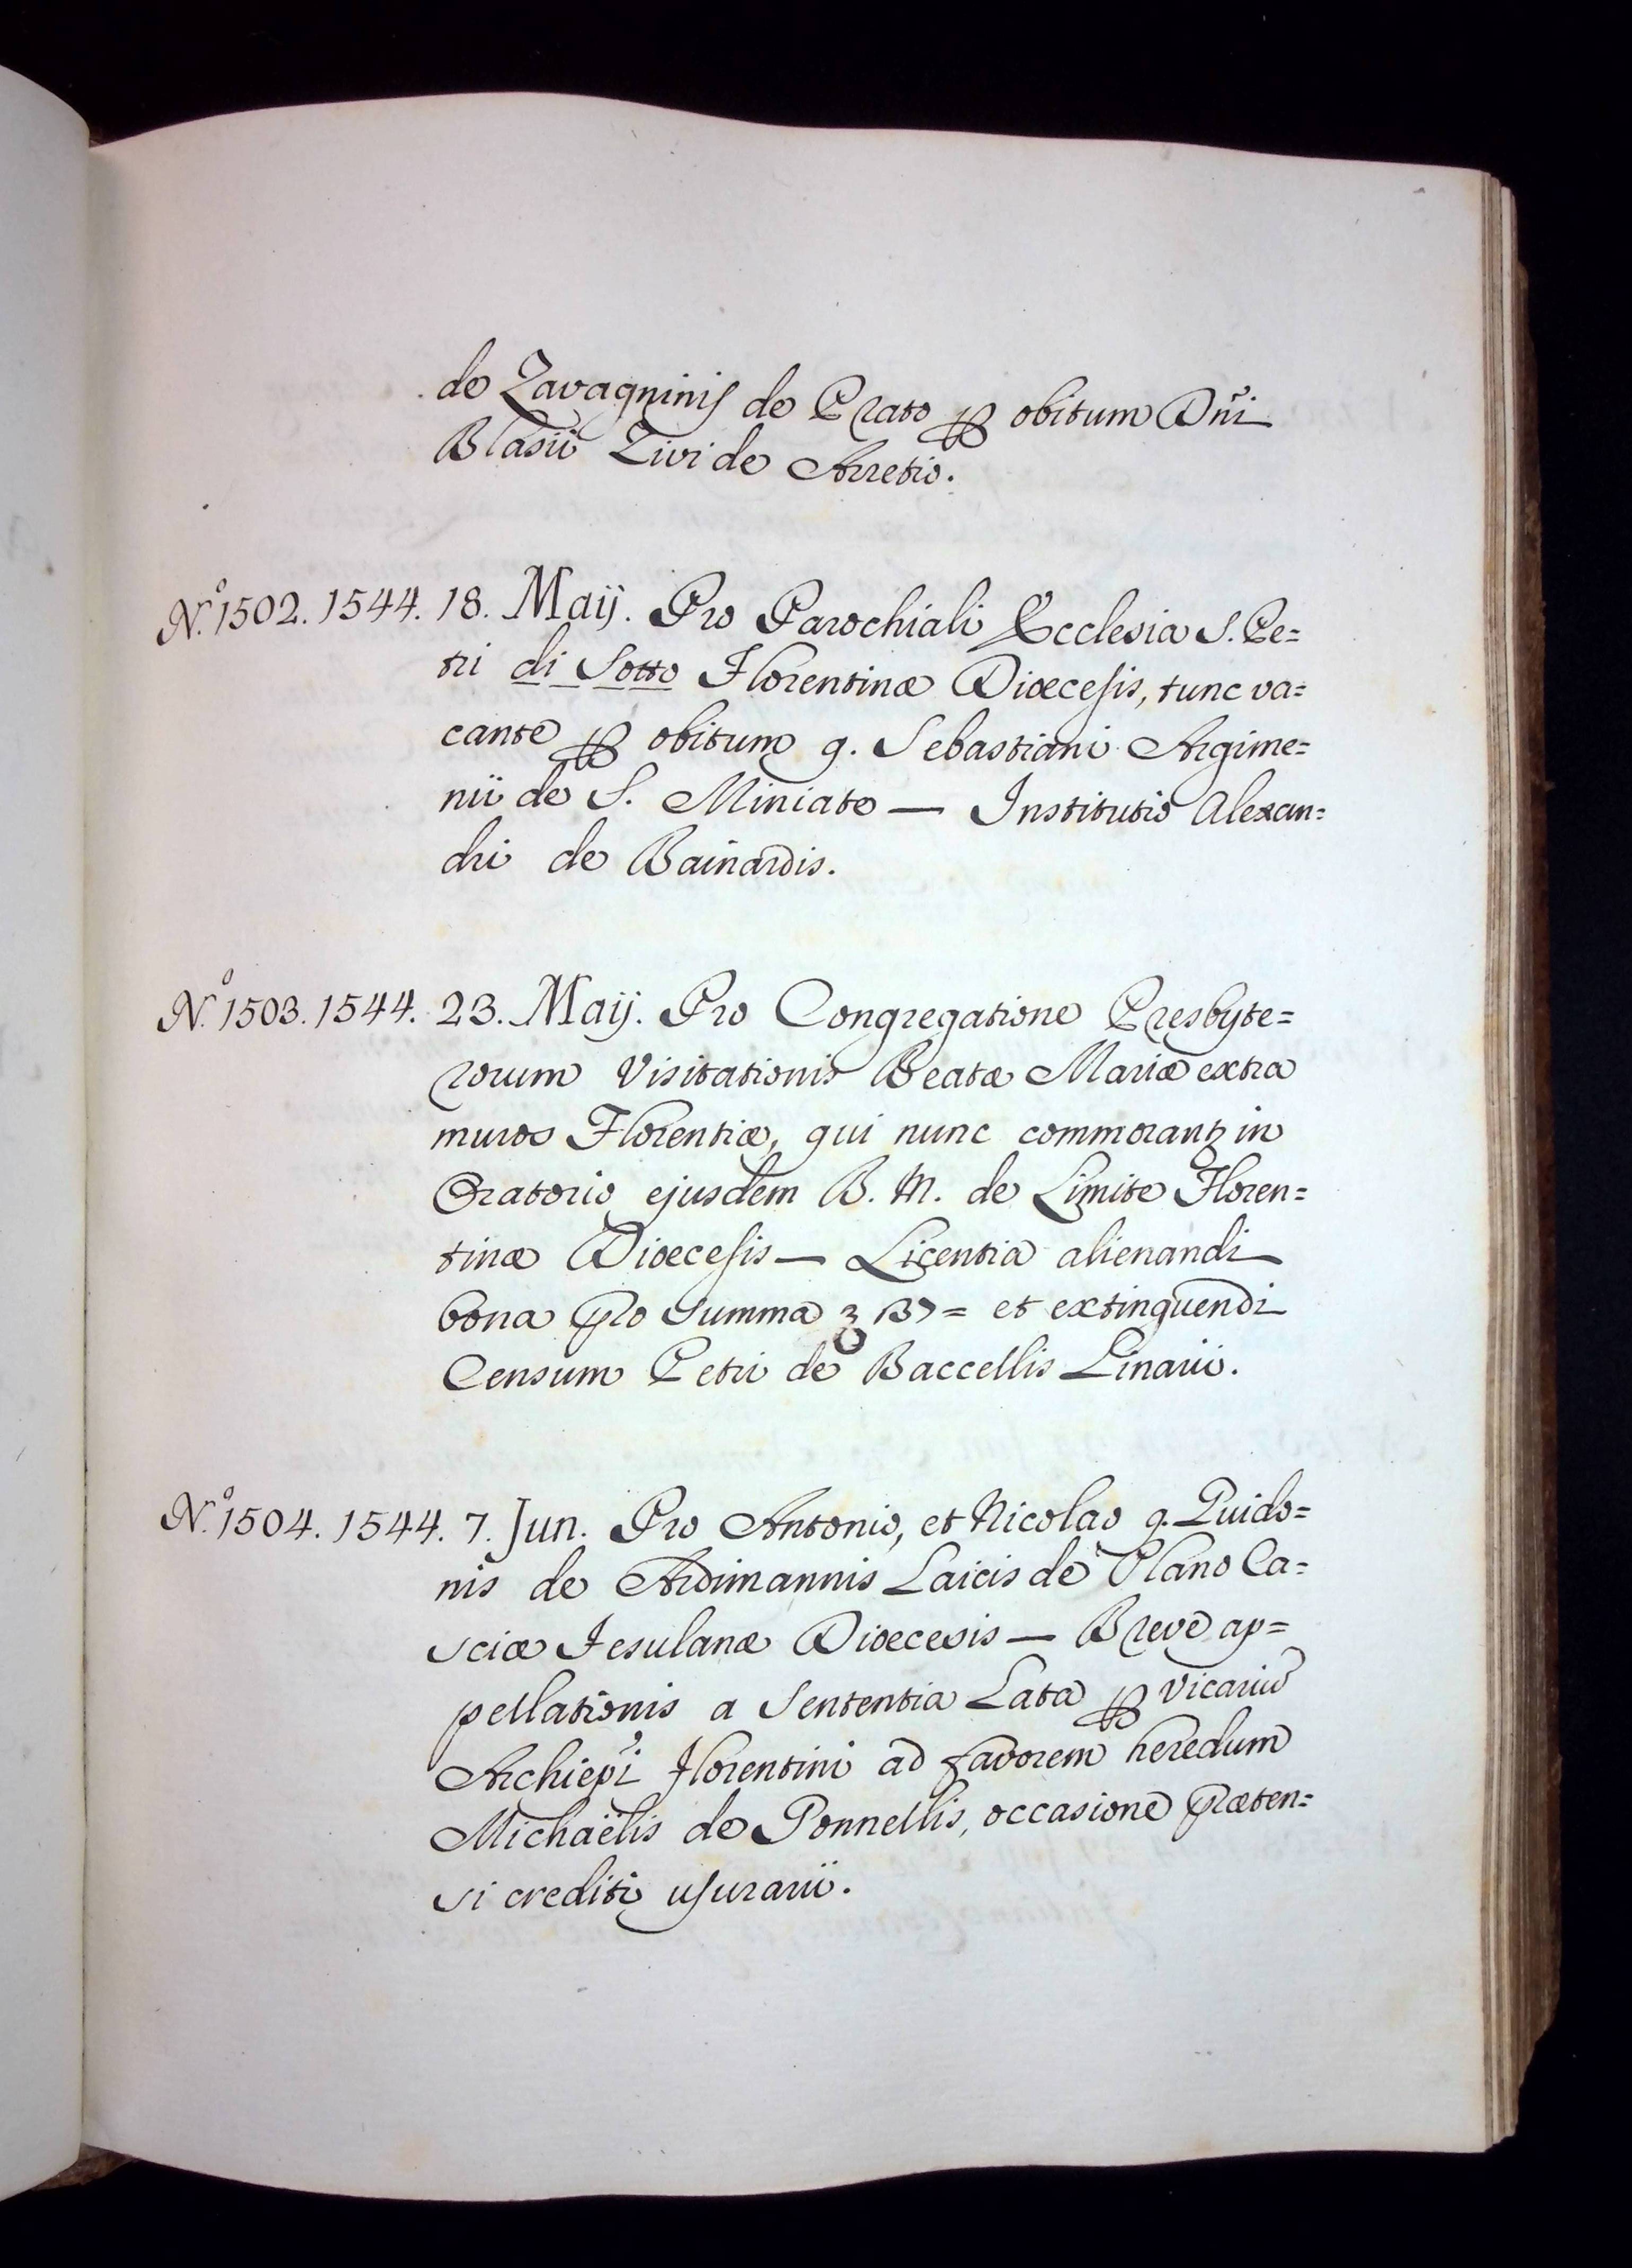 de Zavagninis de Prato ꝑ obitum Dñi
Blasii Zivi de Arretio.
N.º 1502. 1544. 18. Maij. Pro Parochiali Ecclesia S. Pe=
tri di Sotto Florentinæ Diœcesis, tunc va=
cante ꝑ obitum q. Sebastiani Argime=
nii de S. Miniato — Institutio Alexan=
dri de Bainardis.
N.º 1503. 1544. 23. Maij. Pro Congregatione Presbyte=
rorum Visitationis Beatæ Mariæ extra
muros Florentiæ, qui nunc commorantꝫ in
Oratorio ejusdem B. M. de Limite Floren=
tinæ Diœcesis — Licentia alienandi
bona pro summa = et extinguendi
Censum Petri de Baccellis Linarii.
N.º 1504. 1544. 7. Jun. Pro Antonio, et Nicolao q. Guido=
nis de Ardimannis Laicis de Plano Ca=
sciæ Fesulanæ Diœcesis — Breve ap=
pellationis a Sententia Lata ꝑ Vicariũ
Archiepĩ Florentini ad favorem heredum
Michaëlis de Ponnellis, occasione præten=
si crediti usurarii.